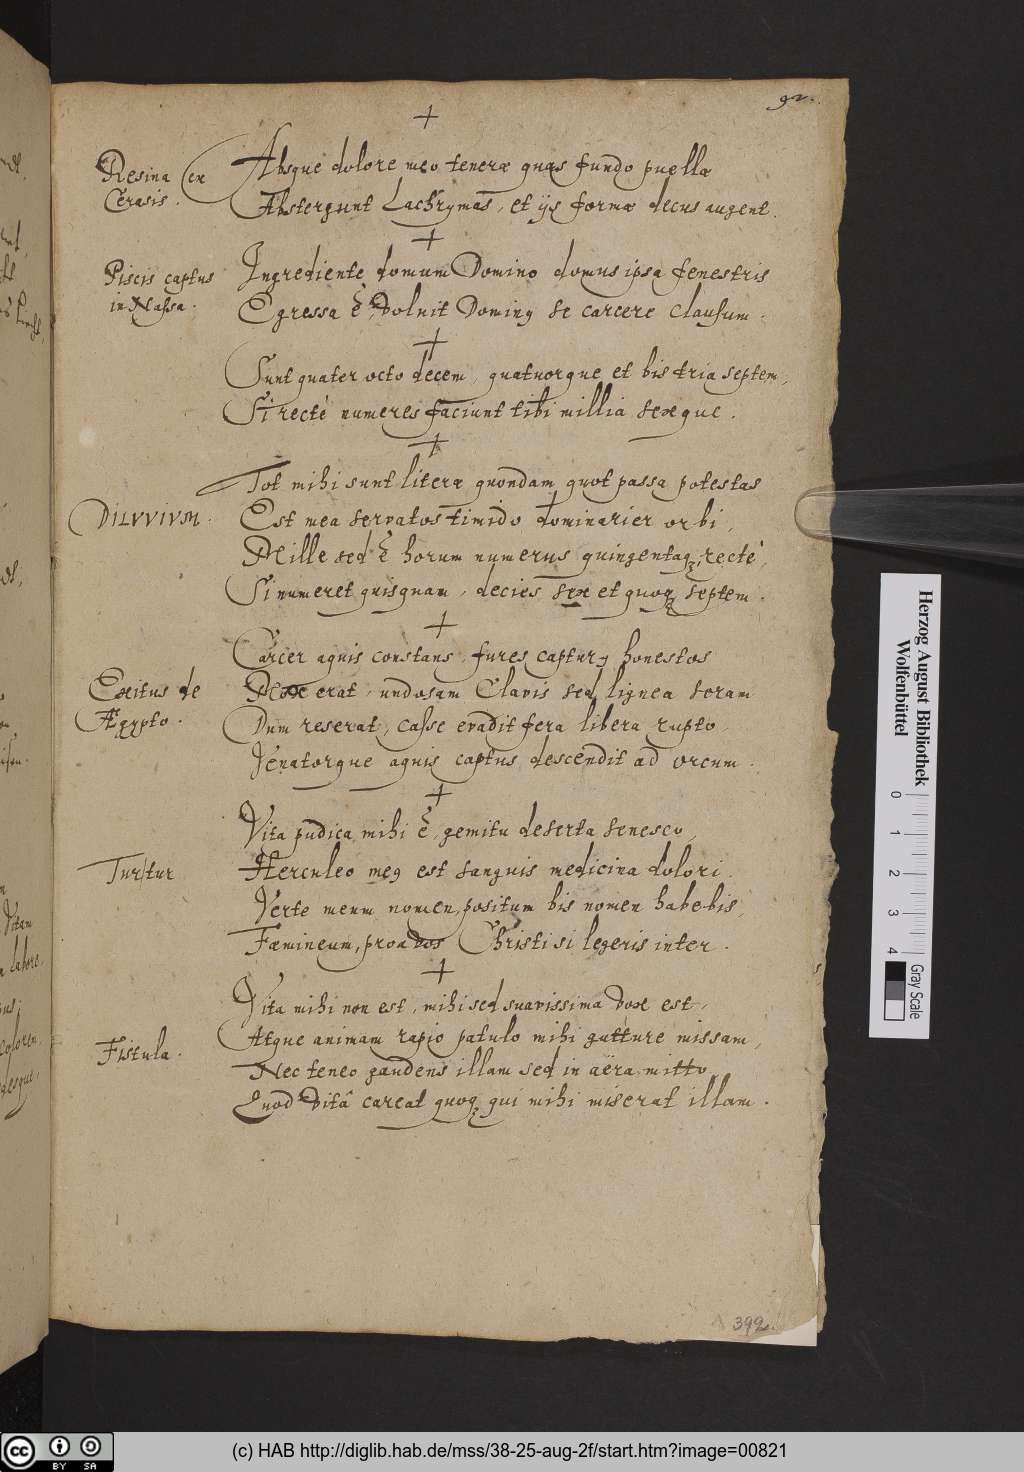 92.
Resina ex
Cerasis.
Absque dolore meo teneræ quas fundo puellæ
Abstergunt Lachrymas, et ijs formæ decus augent.
Piscis captus
in Nassa.
Ingrediente domum Domino domus ipsa fenestris
Egressa ē, voluit Dominꝰ se carcere clausum.
Sunt quater octo decem, quatuorque et bis tria septem,
Si rectè numeres faciunt tibi millia sexque.
DILVVIVM.
Tot mihi sunt literæ quondam quot passa potestas
Est mea servatos timido dominarier orbi,
Mille sed ē horum numerus quingentaq; rectè,
Si numeret quisquam, decies sex et quoq; septem.
Exitus de
Ægypto.
Carcer aquis constans, fures capturꝰ honestos
Mox erat, undosam Clavis sed lignea seram
Dum reserat, casse evadit fera libera rupto
Venatorque aquis captus descendit ad orcum.
Turtur
Vita pudica mihi ē, gemitu deserta senesco,
Herculeo meꝰ est sanguis medicina dolori.
Verte meum nomen, positum bis nomen habebis,
Fæmineum, proavos Christi si legeris inter.
Fistula.
Vita mihi non est, mihi sed suavissima vox est,
Atque animam rapio patulo mihi gutture missam,
Nec teneo gaudens illam sed in aëra mitto
Quod vitâ careat quoq; qui mihi miserat illam.
392
Herzog August Bibliothek
Wolfenbüttel
0 1 2 3 4
Gray Scale
cc BY SA
(c) HAB http://diglib.hab.de/mss/38-25-aug-2f/start.htm?image=00821